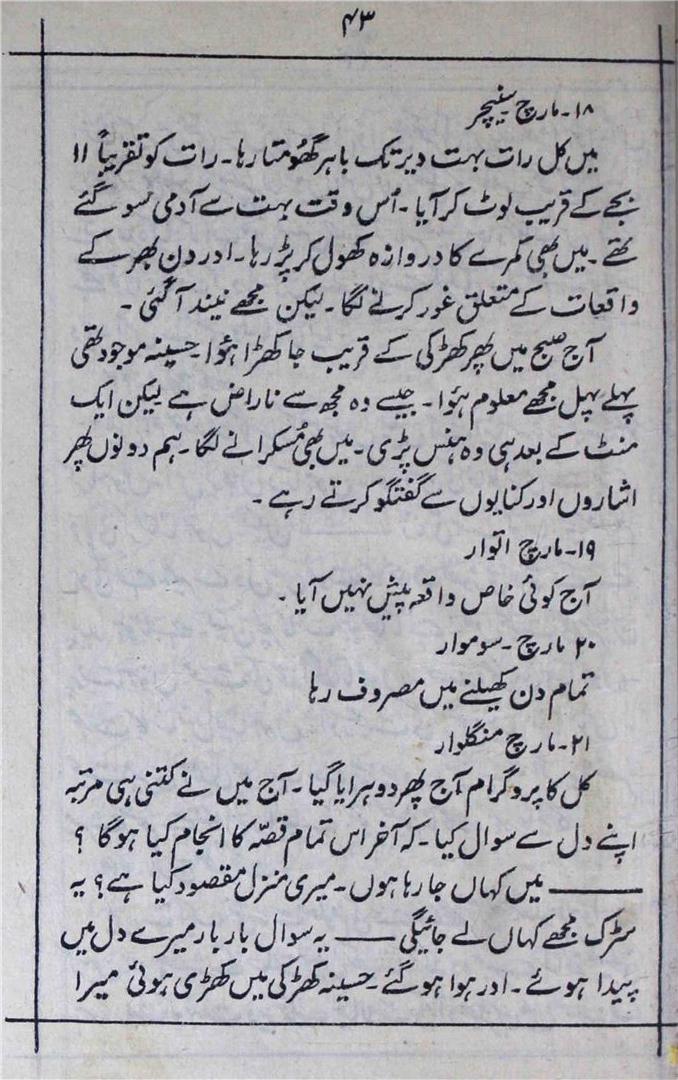 ۴۳
۱۸۔مارچ سنیچر
میں کل رات بہت دیر تک باہر گھُومتا رہا۔ رات کو تقریباً ۱۱
بجے کے قریب لوٹ کر آیا۔ اُس وقت بہت سے آدمی سو گئے
تھے۔ میں بھی کمرے کا دروازہ کھول کر پڑ رہا۔ اور دن بھر کے
واقعات کے متعلق غور کرنے لگا۔ لیکن مجھے نیند آ گئی ۔
آج صبح میں پھر کھڑکی کے قریب جا کھڑا ہؤا۔ حسینہ موجود تھی
پہلے پہل مجھے معلوم ہؤا۔ جیسے وہ مجھ سے ناراض ہے لیکن ایک
منٹ کے بعد ہی وہ ہنس پڑی۔ میں بھی مُسکرانے لگا۔ ہم دونوں پھر
اشاروں اور کنایوں سے گفتگو کرتے رہے ۔
۱۹۔مارچ اتوار
آج کوئی خاص واقعہ پیش نہیں آیا ۔
۲۰ مارچ ۔سوموار
تمام دن کھیلنے میں مصروف رہا
۲۱۔مارچ منگلوار
کل کا پروگرام آج پھر دوہرایا گیا۔ آج میں نے کتنی ہی مرتبہ
اپنے دل سے سوال کیا۔ کہ آخر اس تمام قصّہ کا انجام کیا ہوگا ؟
—— میں کہاں جا رہا ہوں۔ میری منزل مقصود کیا ہے؟ یہ
سڑک مجھے کہاں لے جائیگی —— یہ سوال بار بار میرے دل میں
پیدا ہوئے۔ اور ہوا ہو گئے۔ حسینہ کھڑکی میں کھڑی ہوئی میرا